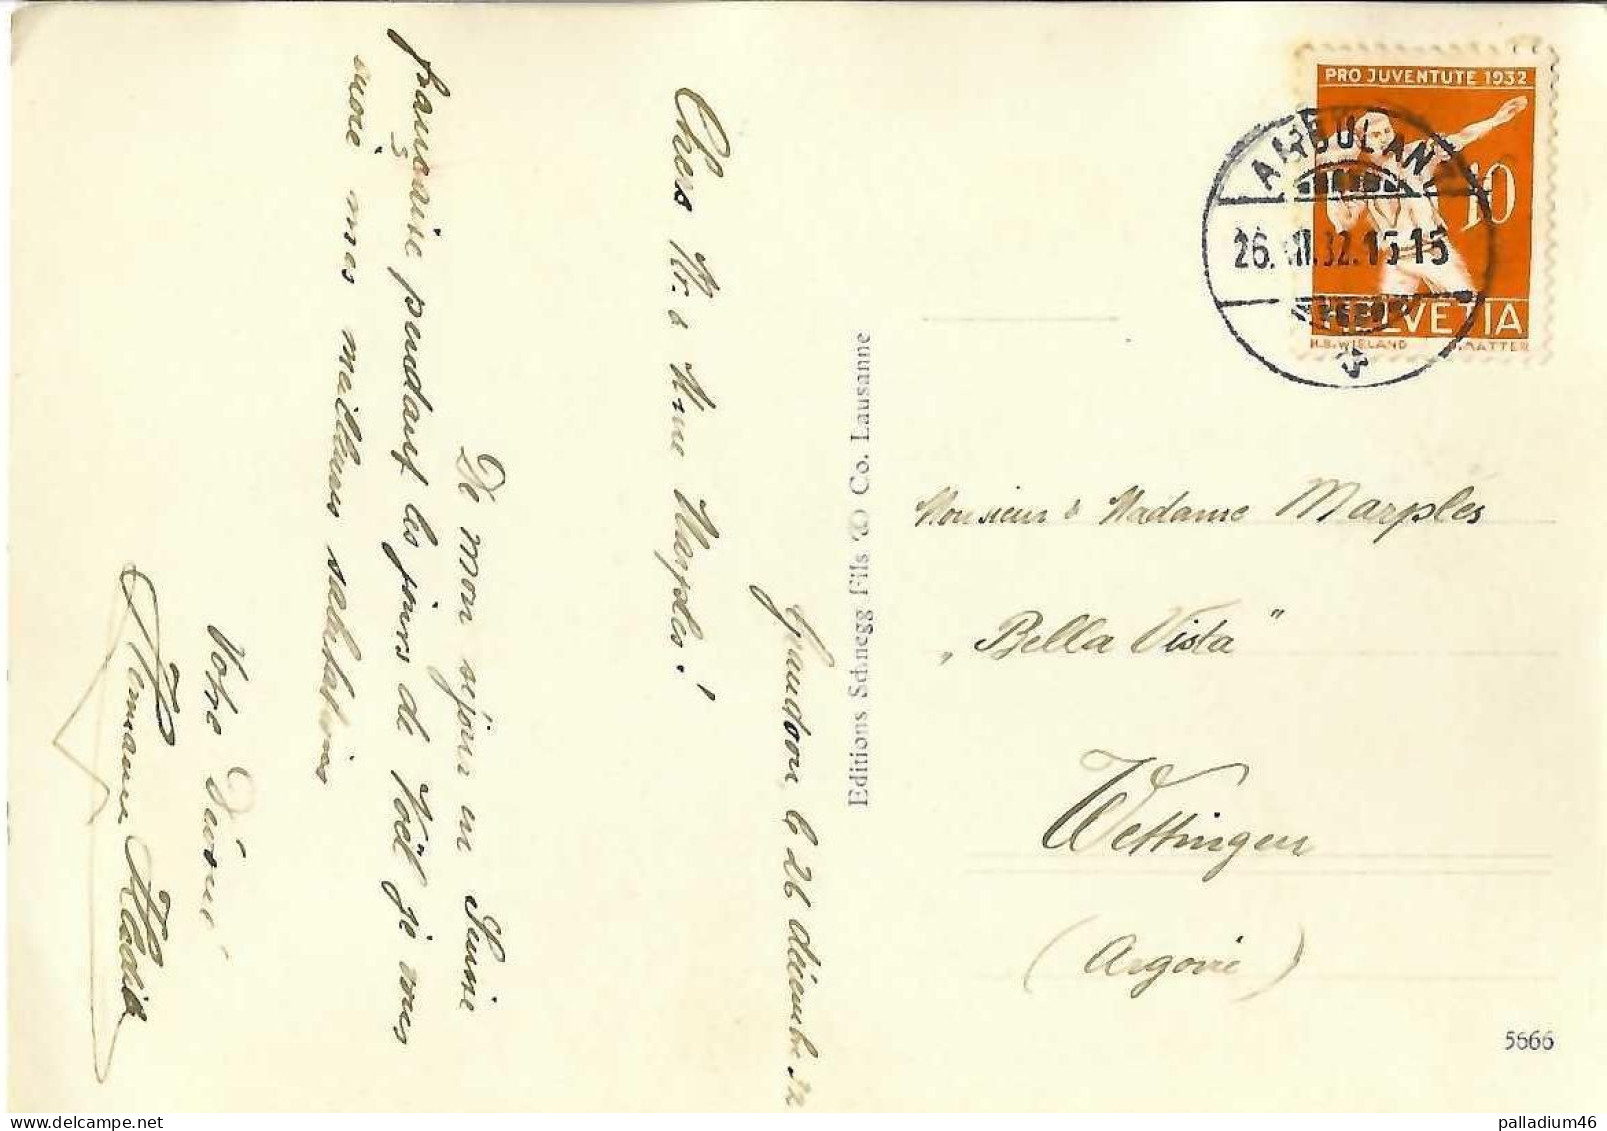 Grandson, le 26 décembre 32
Chers Mr. & Mme Marples!
De mon séjour en Suisse
française pendant les jours de Noël je vous
envoie mes meilleures salutations
Votre Dévoué
Hermann
Editions Schnegg Fils & Co. Lausanne
PRO JUVENTUTE 1932
10
HELVETIA
H.B.WIELAND
AMBULANT
26.XII.32.15-15
Monsieur & Madame Marples
„Bella Vista"
Wettingen
(Argovie)
5666
palladium46